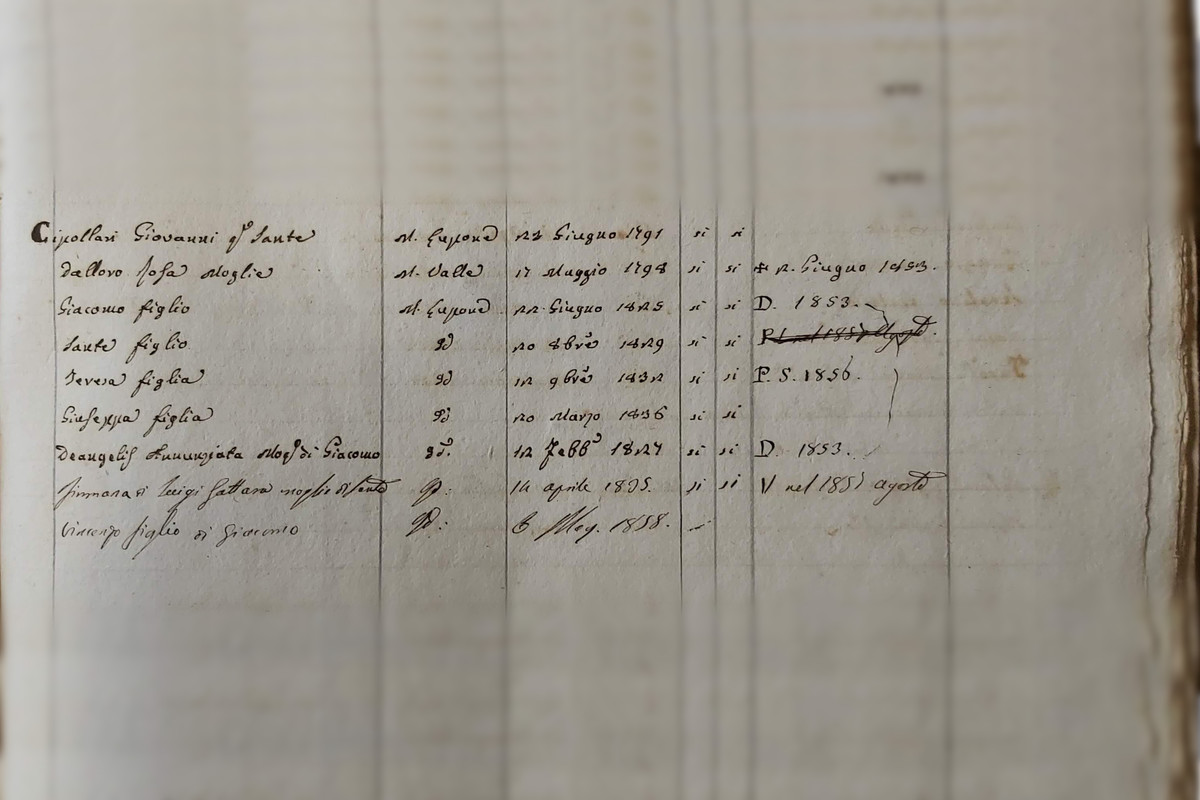 Cipollari Giovanni qm Sante M. Lupone 23 Giugno 1791 si si
Dalloro Rosa Moglie M. Valle 17 Maggio 1798 si si 2. Giugno 1853.
Giacomo figlio M. Lupone 22 Giugno 1825 si si D. 1853.
Sante figlio 20 8bre 1829 si si
Teresa figlia 12 9bre 1832 si si P. S. 1856.
Giuseppa figlia 20 Marzo 1836 si si
Deangelis Annunziata Mogl di Giacomo 12 Febb 1827 si si D. 1853.
di Luigi moglie di Sante 14 aprile 1835. si si V nel 1857 agosto
Vincenzo figlio di Giacomo 6 Mag. 1858.